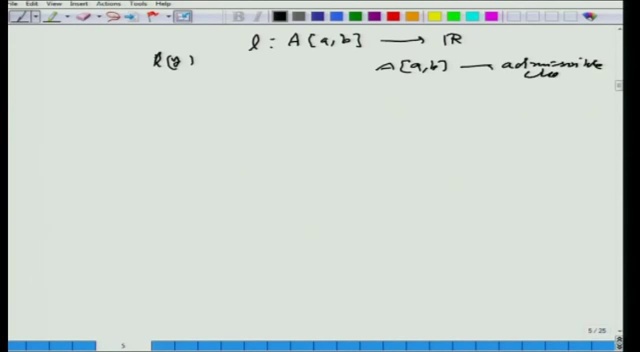 File Edit View Insert Actions Tools Help
l : A[a,b] ⟶ ℝ
l(y)
A[a,b] — admissible class
5 / 25
5